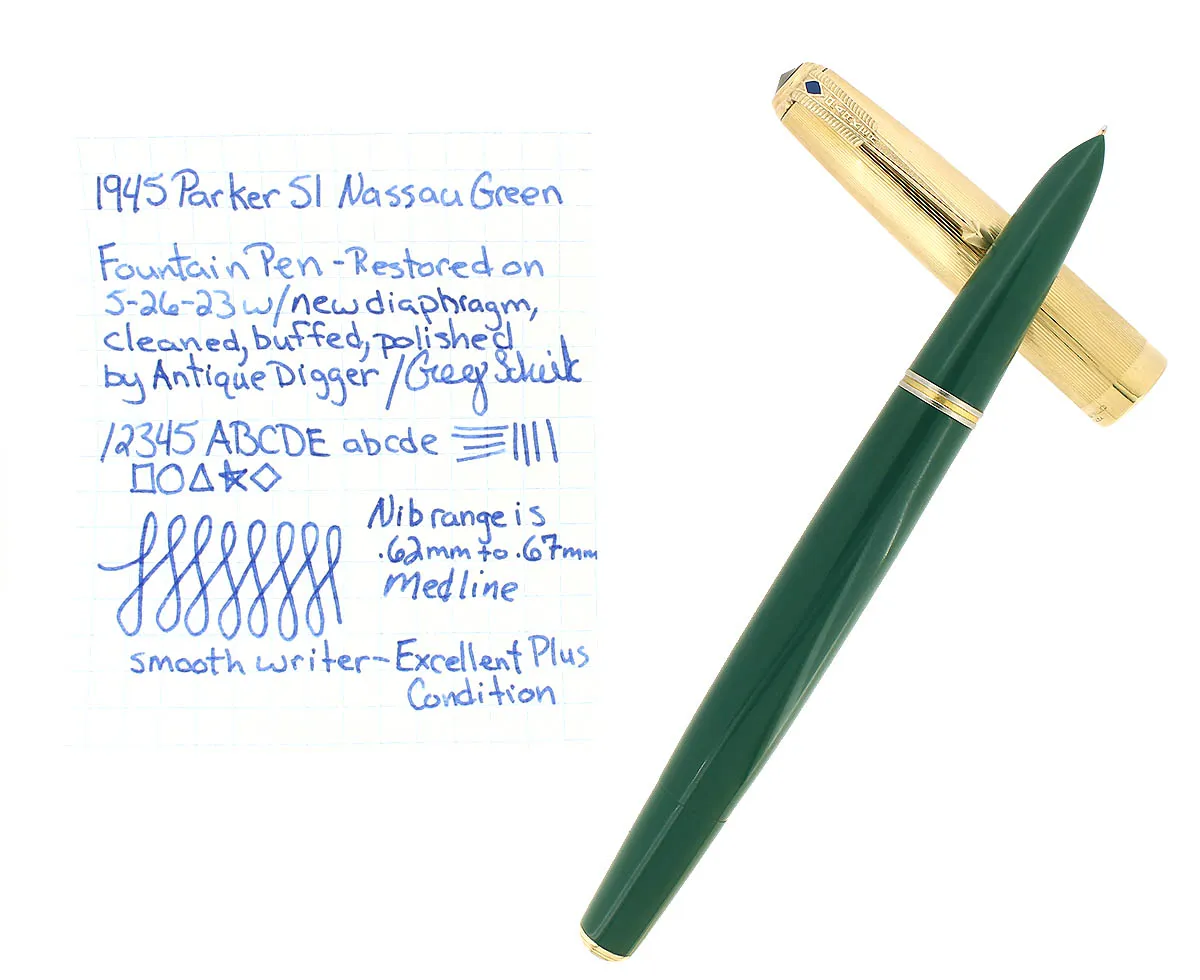 1945 Parker 51 Nassau Green
Fountain Pen - Restored on
5-26-23 w/ new diaphragm,
cleaned, buffed, polished
by Antique Digger / Greg Scheik
12345 ABCDE abcde
Nib range is
.62mm to .67mm
Med line
smooth writer - Excellent Plus
Condition
PARKER